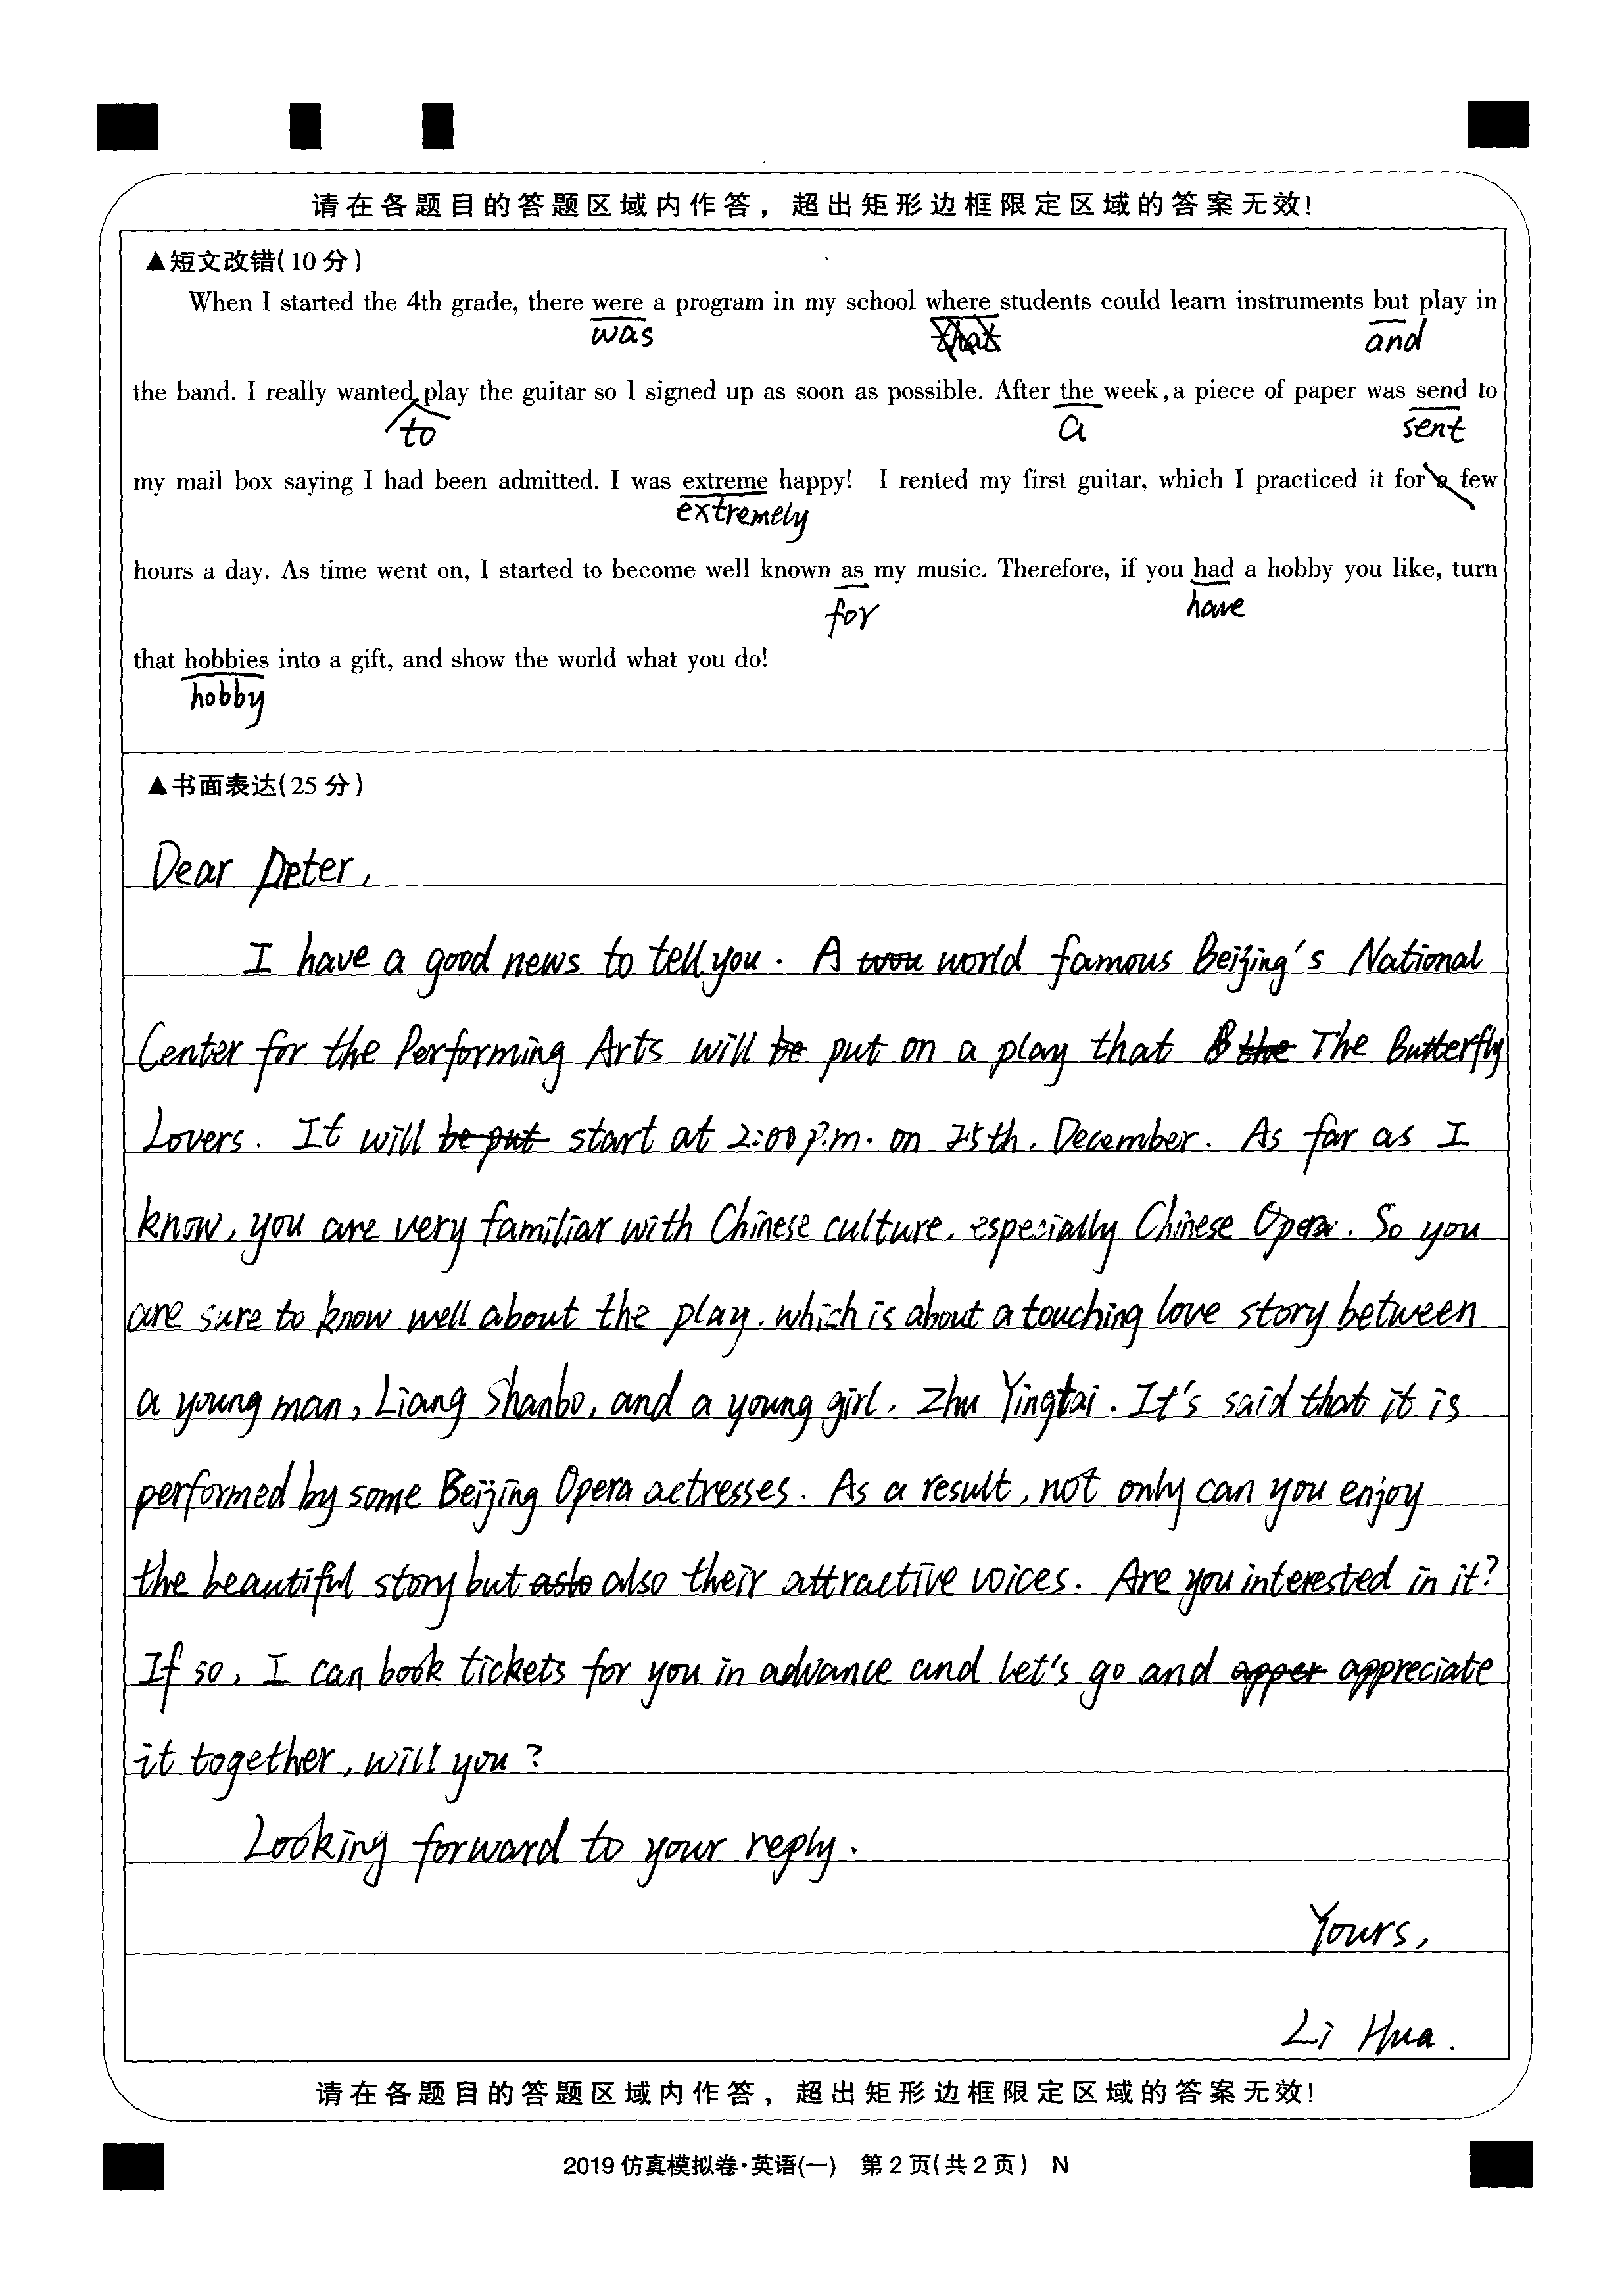 请在各题目的答题区域内作答，超出矩形边框限定区域的答案无效！
▲短文改错(10分)
When I started the 4th grade, there were a program in my school where students could learn instruments but play in
was that and
the band. I really wanted play the guitar so I signed up as soon as possible. After the week, a piece of paper was send to
to a sent
my mail box saying I had been admitted. I was extreme happy! I rented my first guitar, which I practiced it for a few
extremely
hours a day. As time went on, I started to become well known as my music. Therefore, if you had a hobby you like, turn
for have
that hobbies into a gift, and show the world what you do!
hobby
▲书面表达(25分)
Dear Peter,
I have a good news to tell you. A wou world famous Beijing's National
Center for the Performing Arts will be put on a play that B the The Butterfly
Lovers. It will be put start at 2:00 p.m. on 25th, December. As far as I
know, you are very familiar with Chinese culture, especially Chinese Opera. So you
are sure to know well about the play, which is about a touching love story between
a young man, Liang Shanbo, and a young girl, Zhu Yingtai. It's said that it is
performed by some Beijing Opera actresses. As a result, not only can you enjoy
the beautiful story but aslo also their attractive voices. Are you interested in it?
If so, I can book tickets for you in advance and let's go and apper appreciate
it together, will you?
Looking forward to your reply.
Yours,
Li Hua.
请在各题目的答题区域内作答，超出矩形边框限定区域的答案无效！
2019仿真模拟卷·英语(一) 第2页(共2页) N